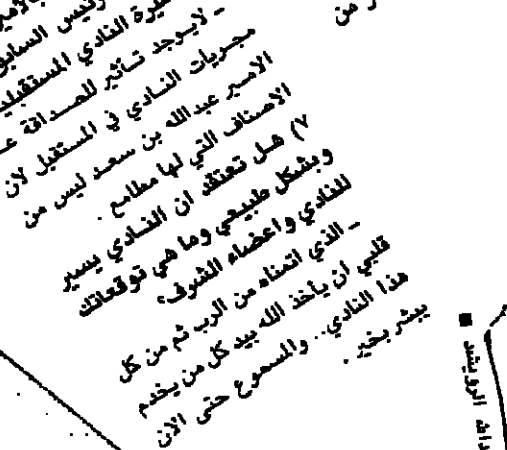 بالامير
ورئيس السابق
النادي المستقبلية
- لايوجد تأثير للصداقة
مجريات النادي في المستقبل لان
الامير عبدالله بن سعد ليس من
الاصناف التي لها مطامع .
٧) هل تعتقد ان النادي يسير
وبشكل طبيعي وما هي توقعاتك
للنادي واعضاء الشرف؟
- الذي اتمناه من الرب ثم من كل
قلبي ان يأخذ الله بيد كل من يخدم
هذا النادي.. والمسموع حتى الآن
يبشر بخير .
من
■
الرويشد